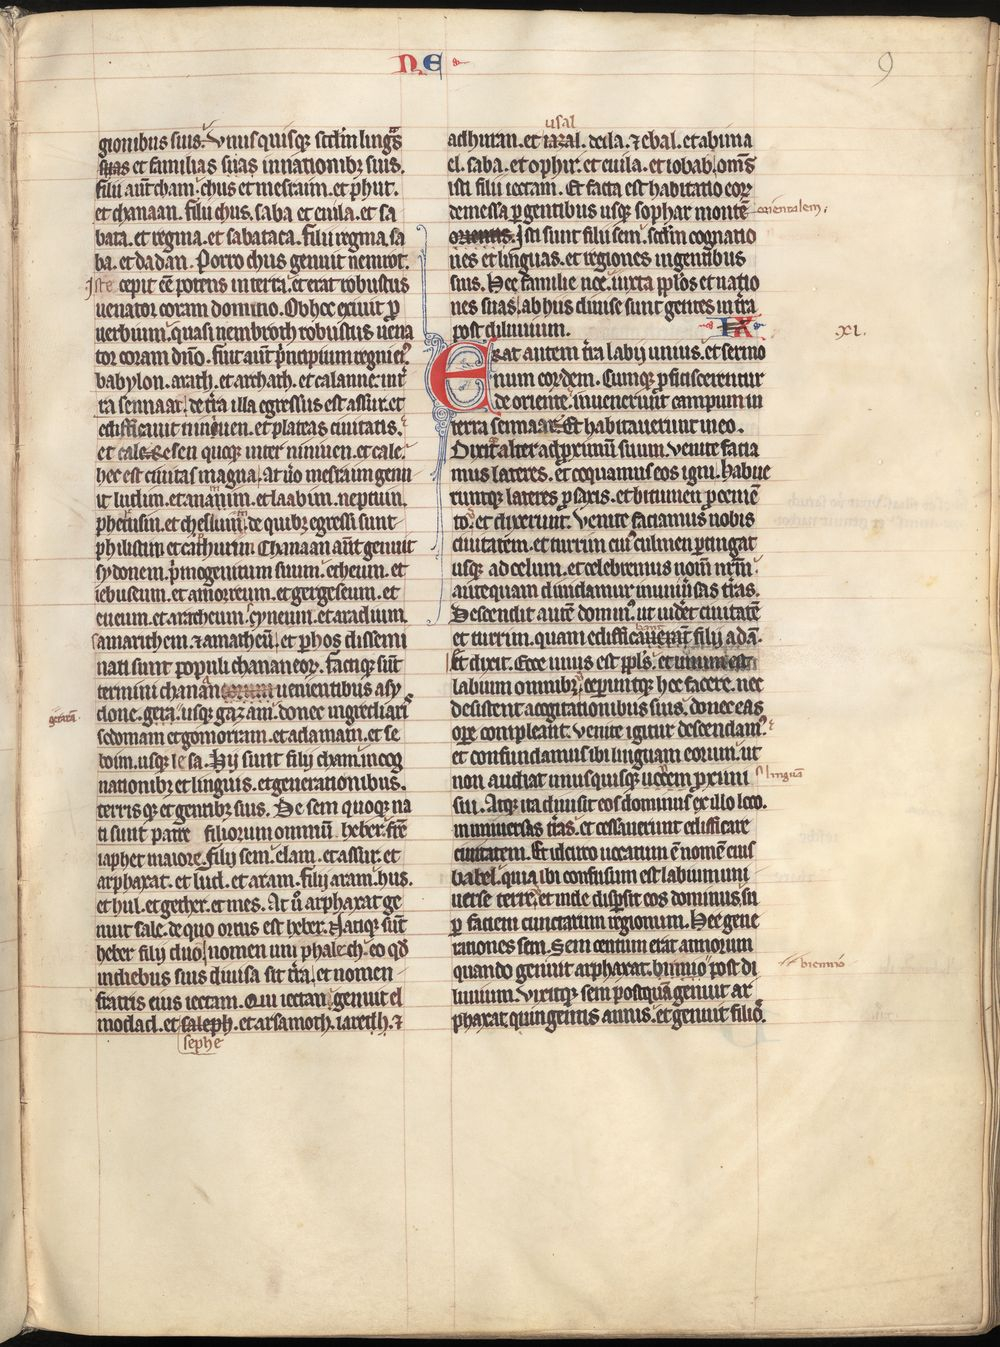 NE
9
gionibus suis. Vnusquisqȝ scd̄m lingᵃs
suas et familias suas in nationibȝ suis.
filii aūt cham. chus et mesraim. et phut.
et chanaan. filii chus. saba et euila. et sa
bata. et regma. et sabataca. filii regma. sa
ba. et dadan. Porro chus genuit nemrot.
Iste cepit eē potens in terra. et erat robustus
uenator coram domino. Ob hec exiuit ꝓ
uerbium. quasi nembroth robustus uena
tor coram dn̄o. fuit aūt pͥncipium regni eiꝰ.
babylon. arath. et archath. et calanne. in tr̄
ra sennaar. de tr̄a illa egressus est assur. et
edifficauit niniuen. et plateas ciuitatis.
et cale. Resen quoqȝ inter niniuen. et cale.
hec est ciuitas magna. At uͦo mesraim genu
it ludim. et anamim. et laabim. neptuin.
phetusin. et chesluim. de quibȝ egressi sunt
philistim et capthurim. Chanaan aūt genuit
sydonem. pͥmogenitum suum. etheum. et
iebuseum. et amorreum. et gergeseum. et
eueum. et aracheum. cyneum. et aradium.
samarithem. ⁊ amatheū. et ꝑ hos dissemi
nati sunt populi chananeoꝝ. factiqȝ sūt
termini chanan uenientibus a sy
done. gera. usqȝ gazam. donec ingrediarͥ
gerarā.
sodomam et gomorram. et adamam. et se
boim. usqȝ lesa. Hij sunt filij cham. in cog
nationibȝ et linguis. et generationibus.
terrisqȝ et gentibȝ suis. De sem quoqȝ na
ti sunt patre filiorum omniū heber. fr̄e
iaphet maiore. filij sem. elam. et assur. et
arphaxat. et lud. et aram. filij aram. hus.
et hul. et gether. et mes. At u̅ arphaxat ge
nuit sale. de quo ortus est heber. Natiqȝ sūt
heber filij duo. nomen uni phalech. eo qd̄
in diebus suis diuisa sit tr̄a. et nomen
fratris eius iectam. Qui iectan genuit el
modad. et saleph. et arsamoth. iareth. ⁊
sephe
usal
adhuran. et iazal. decla. ⁊ ebal. et abima
el. saba. et ophir. et euila. et iobab. om̄s
isti filii iectam. Et facta est habitatio eoꝝ
de messa ꝑgentibus usqȝ sophar montē
orientalem.
orientis. Isti sunt filii sem. scd̄m cognatio
nes et linguas. et regiones in gentibus
suis. Hee familie noe. iuxta pp̄los et natio
nes suas. ab his diuise sunt gentes in tr̄a
post diluuium. IX
XI.
Erat autem tr̄a labij unius. et sermo
num eoꝝdem. Cumqȝ ꝓficiscerentur
de oriente. inuenerunt campum in
terra sennaar. Et habitauerunt in eo.
Dixit alter ad proximū suum. Venite facia
mus lateres. et coquamus eos igni. Habue
runtqȝ lateres ꝓ saxis. et bitumen ꝓ cemē
to. et dixerunt. Venite faciamus nobis
ciuitatem. et turrim cuiꝰ culmen ꝑtingat
usqȝ ad celum. et celebremus nom̄ nr̄m.
antequam diuidamur in uniūsas tr̄as.
Descendit autē dominꝰ. ut uidet ciuitatē
et turrim. quam edifficauerāt filij adā.
Et dixit. Ecce unus est pp̄ls. et unum est
labium omnibȝ. ceperuntqȝ hoc facere. nec
desistent a cogitationibus suis. donec eas
opere compleant. Venite igitur descendamꝰ.
et confundamus ibi linguam eorum. ut
non audiat unusquisqȝ uocem proximi
linguā
sui. Atqȝ ita diuisit eos dominus ex illo loco.
in uniuersas tr̄as. et cessauerunt edifficare
ciuitatem. Et idcirco uocatum ē nomē eius
babel. quia ibi confusum est labium uni
uerse terre. et inde disꝑsit eos dominus. su
ꝑ faciem cunctarum regionum. Hee gene
rationes sem. Sem centum erat annorum
quando genuit arphaxat. binnio post di
biennio
luuium. Vixitqȝ sem postquā genuit ar
phaxat quingentis annis. et genuit filiō.